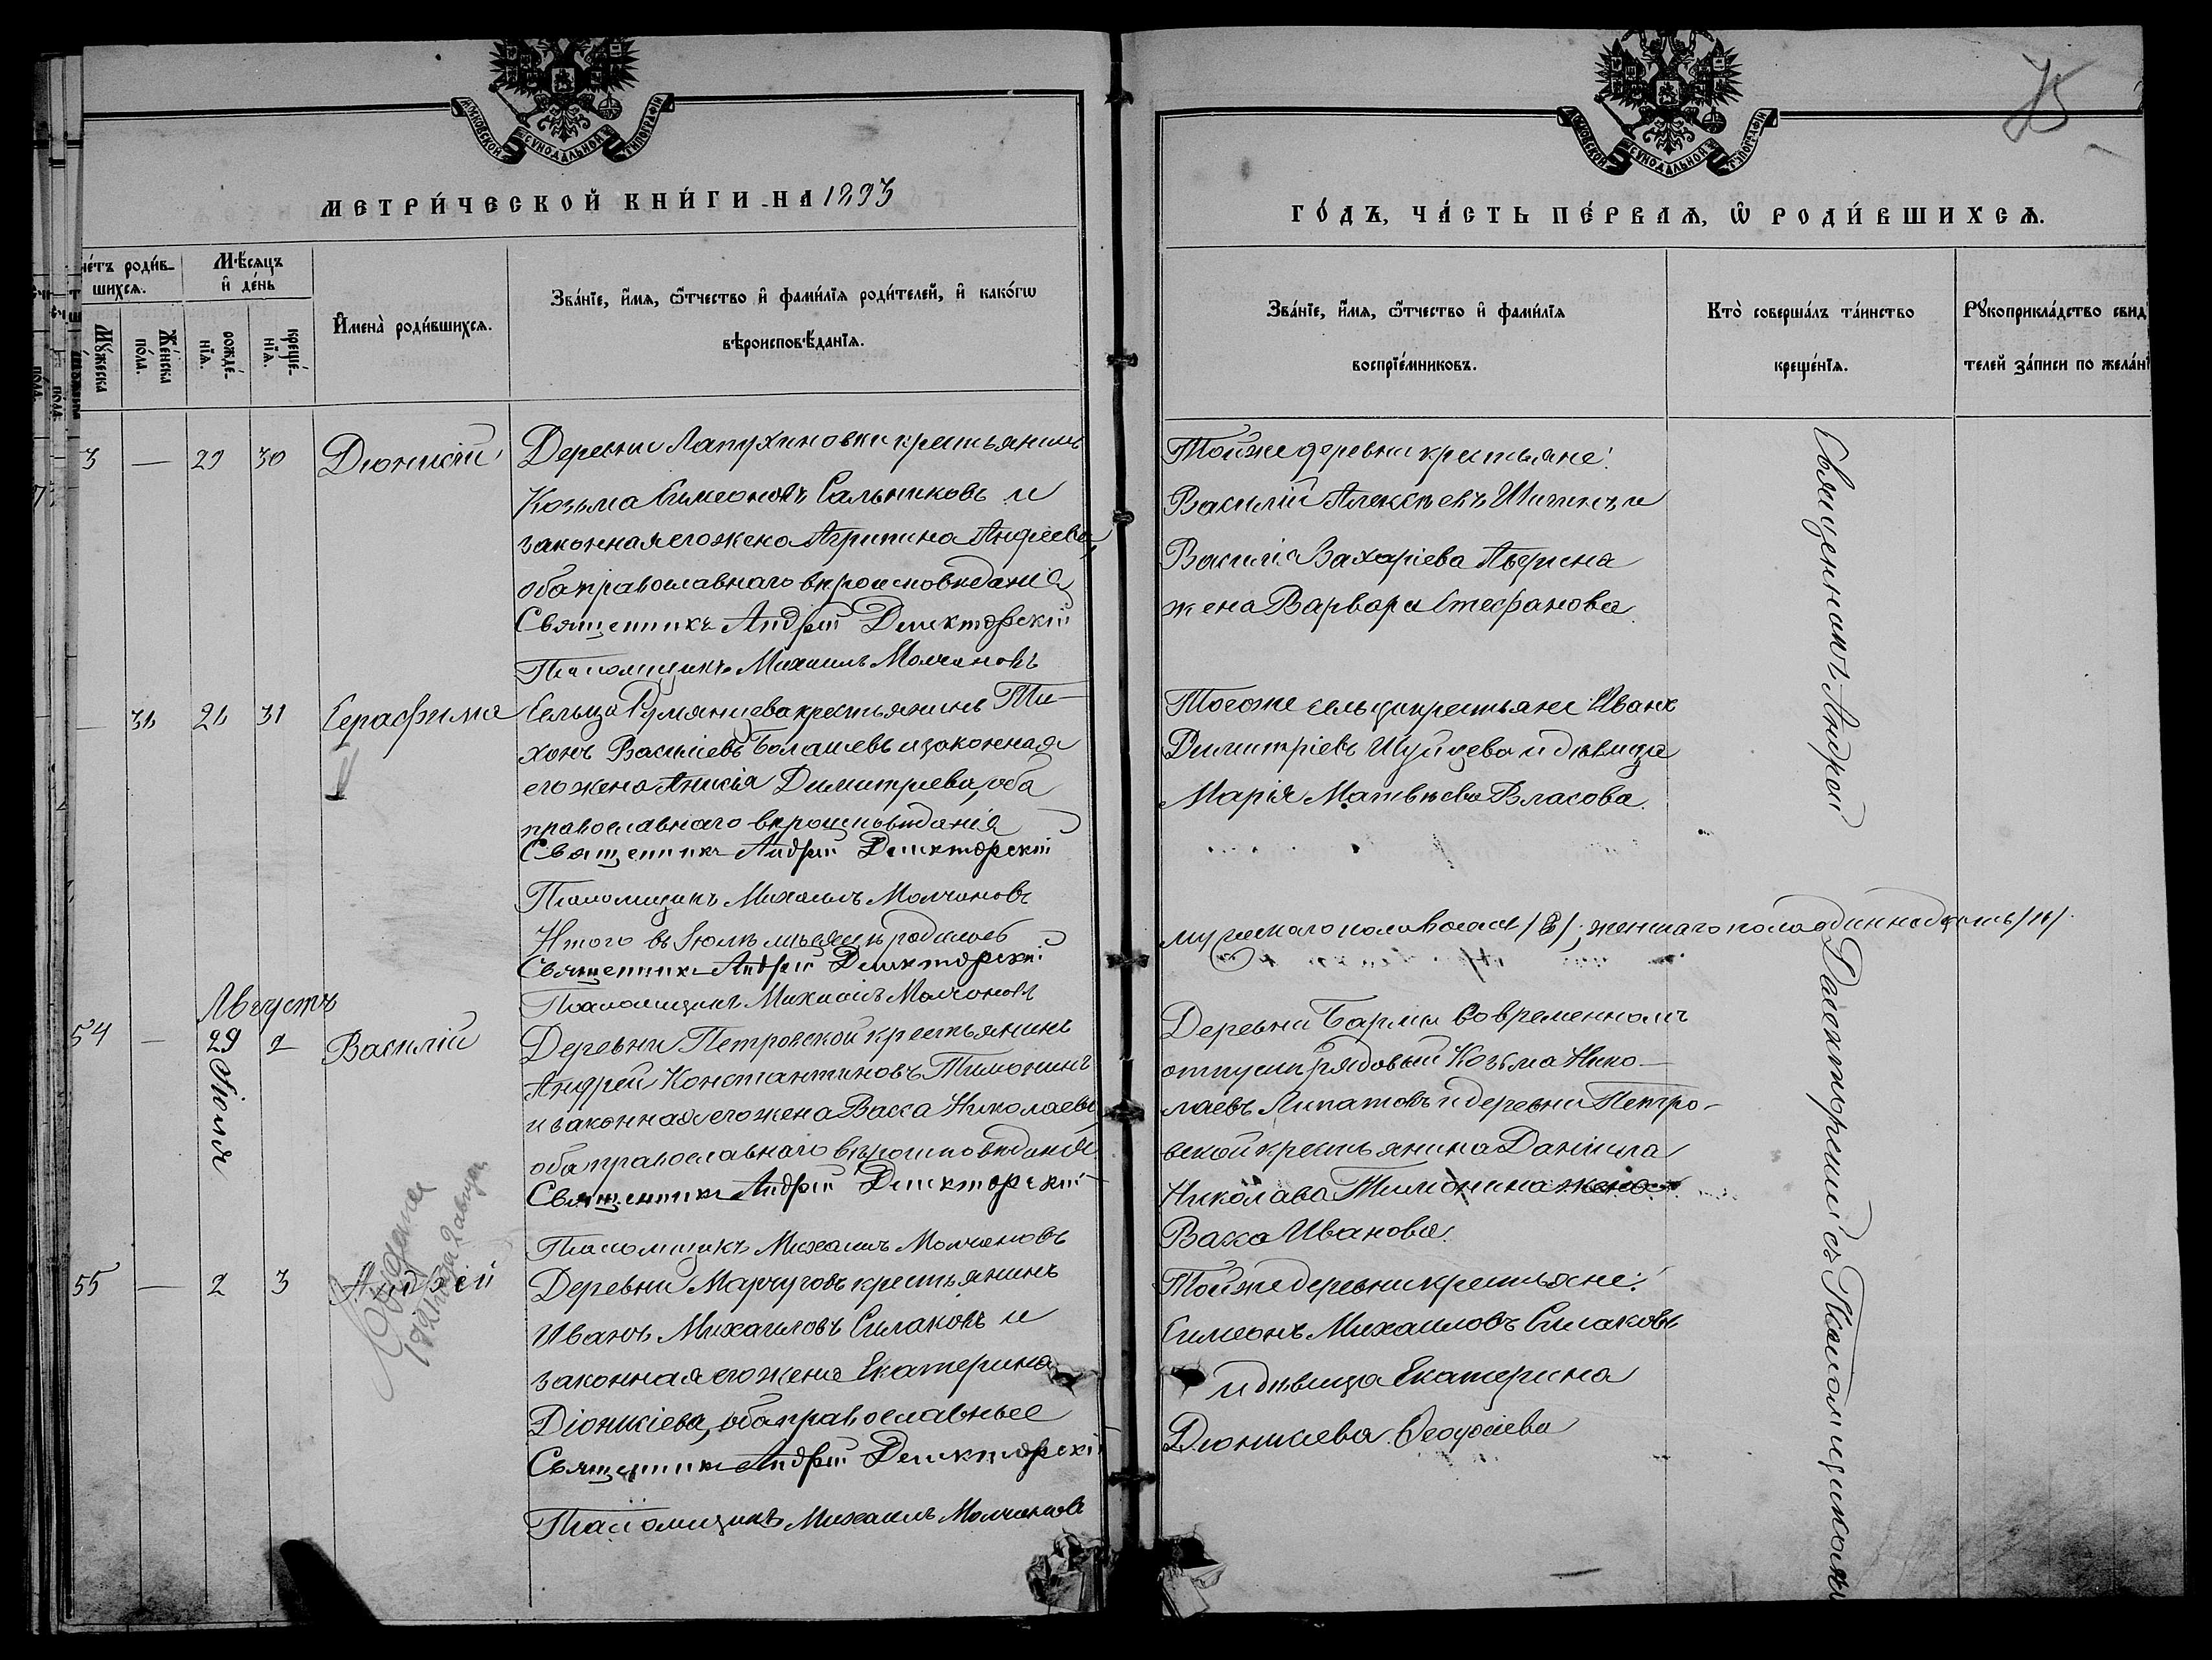 75
МОСКОВСКОЙ СѴНОДАЛЬНОЙ ТИПОГРАФІИ
МОСКОВСКОЙ СѴНОДАЛЬНОЙ ТИПОГРАФІИ
МЕТРИ́ЧЕСКОЙ КНИ́ГИ НА 1893
ГО́ДЪ, ЧА́СТЬ ПЕ́РВАѦ, Ѡ҆ РОДИ́ВШИХСѦ.
че́тъ роди́в-
шихсѧ.
Мꙋ́жеска
Же́нска
по́ла.
Мѣ́сѧцъ
и҆ де́нь
рожде́-
нїѧ.
креще́-
нїѧ.
И҆мена̀ роди́вшихсѧ.
Зва́нїе, и҆́мѧ, ѻ҆́тчество и҆ фами́лїѧ роди́телей, и҆ како́гѡ
вѣроисповѣ́данїѧ.
Зва́нїе, и҆́мѧ, ѻ҆́тчество и҆ фами́лїѧ
воспрїе́мниковъ.
Кто̀ соверша́лъ та́инство
креще́нїѧ.
Рꙋкоприкла́дство свид
телей за́писи по жела́нї
3 — 29 30 Діонисій
Деревни Лапухиновки крестьянинъ
Козьма Симеоновъ Сальниковъ и
законная его жена Агрипина Андреева,
оба православнаго вѣроисповѣданія
Священникъ Андрей
Псаломщикъ Михаилъ Молчановъ
Тойже деревни крестьяне:
Василій Алексѣевъ Шитикъ и
Василія Захаріева Аверина
жена Варвара Стефанова.
— 31 31 Серафима
Сельца Румянцева крестьянинъ Ти-
хонъ Васильевъ Балашевъ и законная
его жена Анисія Димитріева, оба
православнаго вѣроисповѣданія
Священникъ Андрей
Псаломщикъ Михаилъ Молчановъ
Тогоже сельца крестьяне Иванъ
Димитріевъ Шуйцева и дѣвица
Марія Матвѣева Власова.
Итого въ Іюлѣ мѣсяцѣ родилось
мужескаго пола восемь /8/; женскаго пола одиннадцать /11/.
Священникъ Андрей
Псаломщикъ Михаилъ Молчановъ
Августъ
54 — 29 Іюля 2 Василій
Деревни Петровской крестьянинъ
Андрей Константиновъ Тимонинъ
и законная его жена Васса Николаева,
оба православнаго вѣроисповѣданія.
Священникъ Андрей
Псаломщикъ Михаилъ Молчановъ
Деревни Бармы во временномъ
отпуску рядовый Козьма Нико-
лаевъ Липатовъ и деревни Петро-
вской крестьянина Даніила
Николаева Тимонина жена
Васса Иванова.
55 — 2 3 Андрей
Деревни Марчуговъ крестьянинъ
Иванъ Михаиловъ Силаковъ и
законная его жена Екатерина
Діонисіева, оба православные
Священникъ Андрей
Псаломщикъ Михаилъ Молчановъ
Тойже деревни крестьяне:
Симеонъ Михаиловъ Силаковъ
и дѣвица Екатерина
Діонисіева
Священникъ Андрей
съ Псаломщикомъ